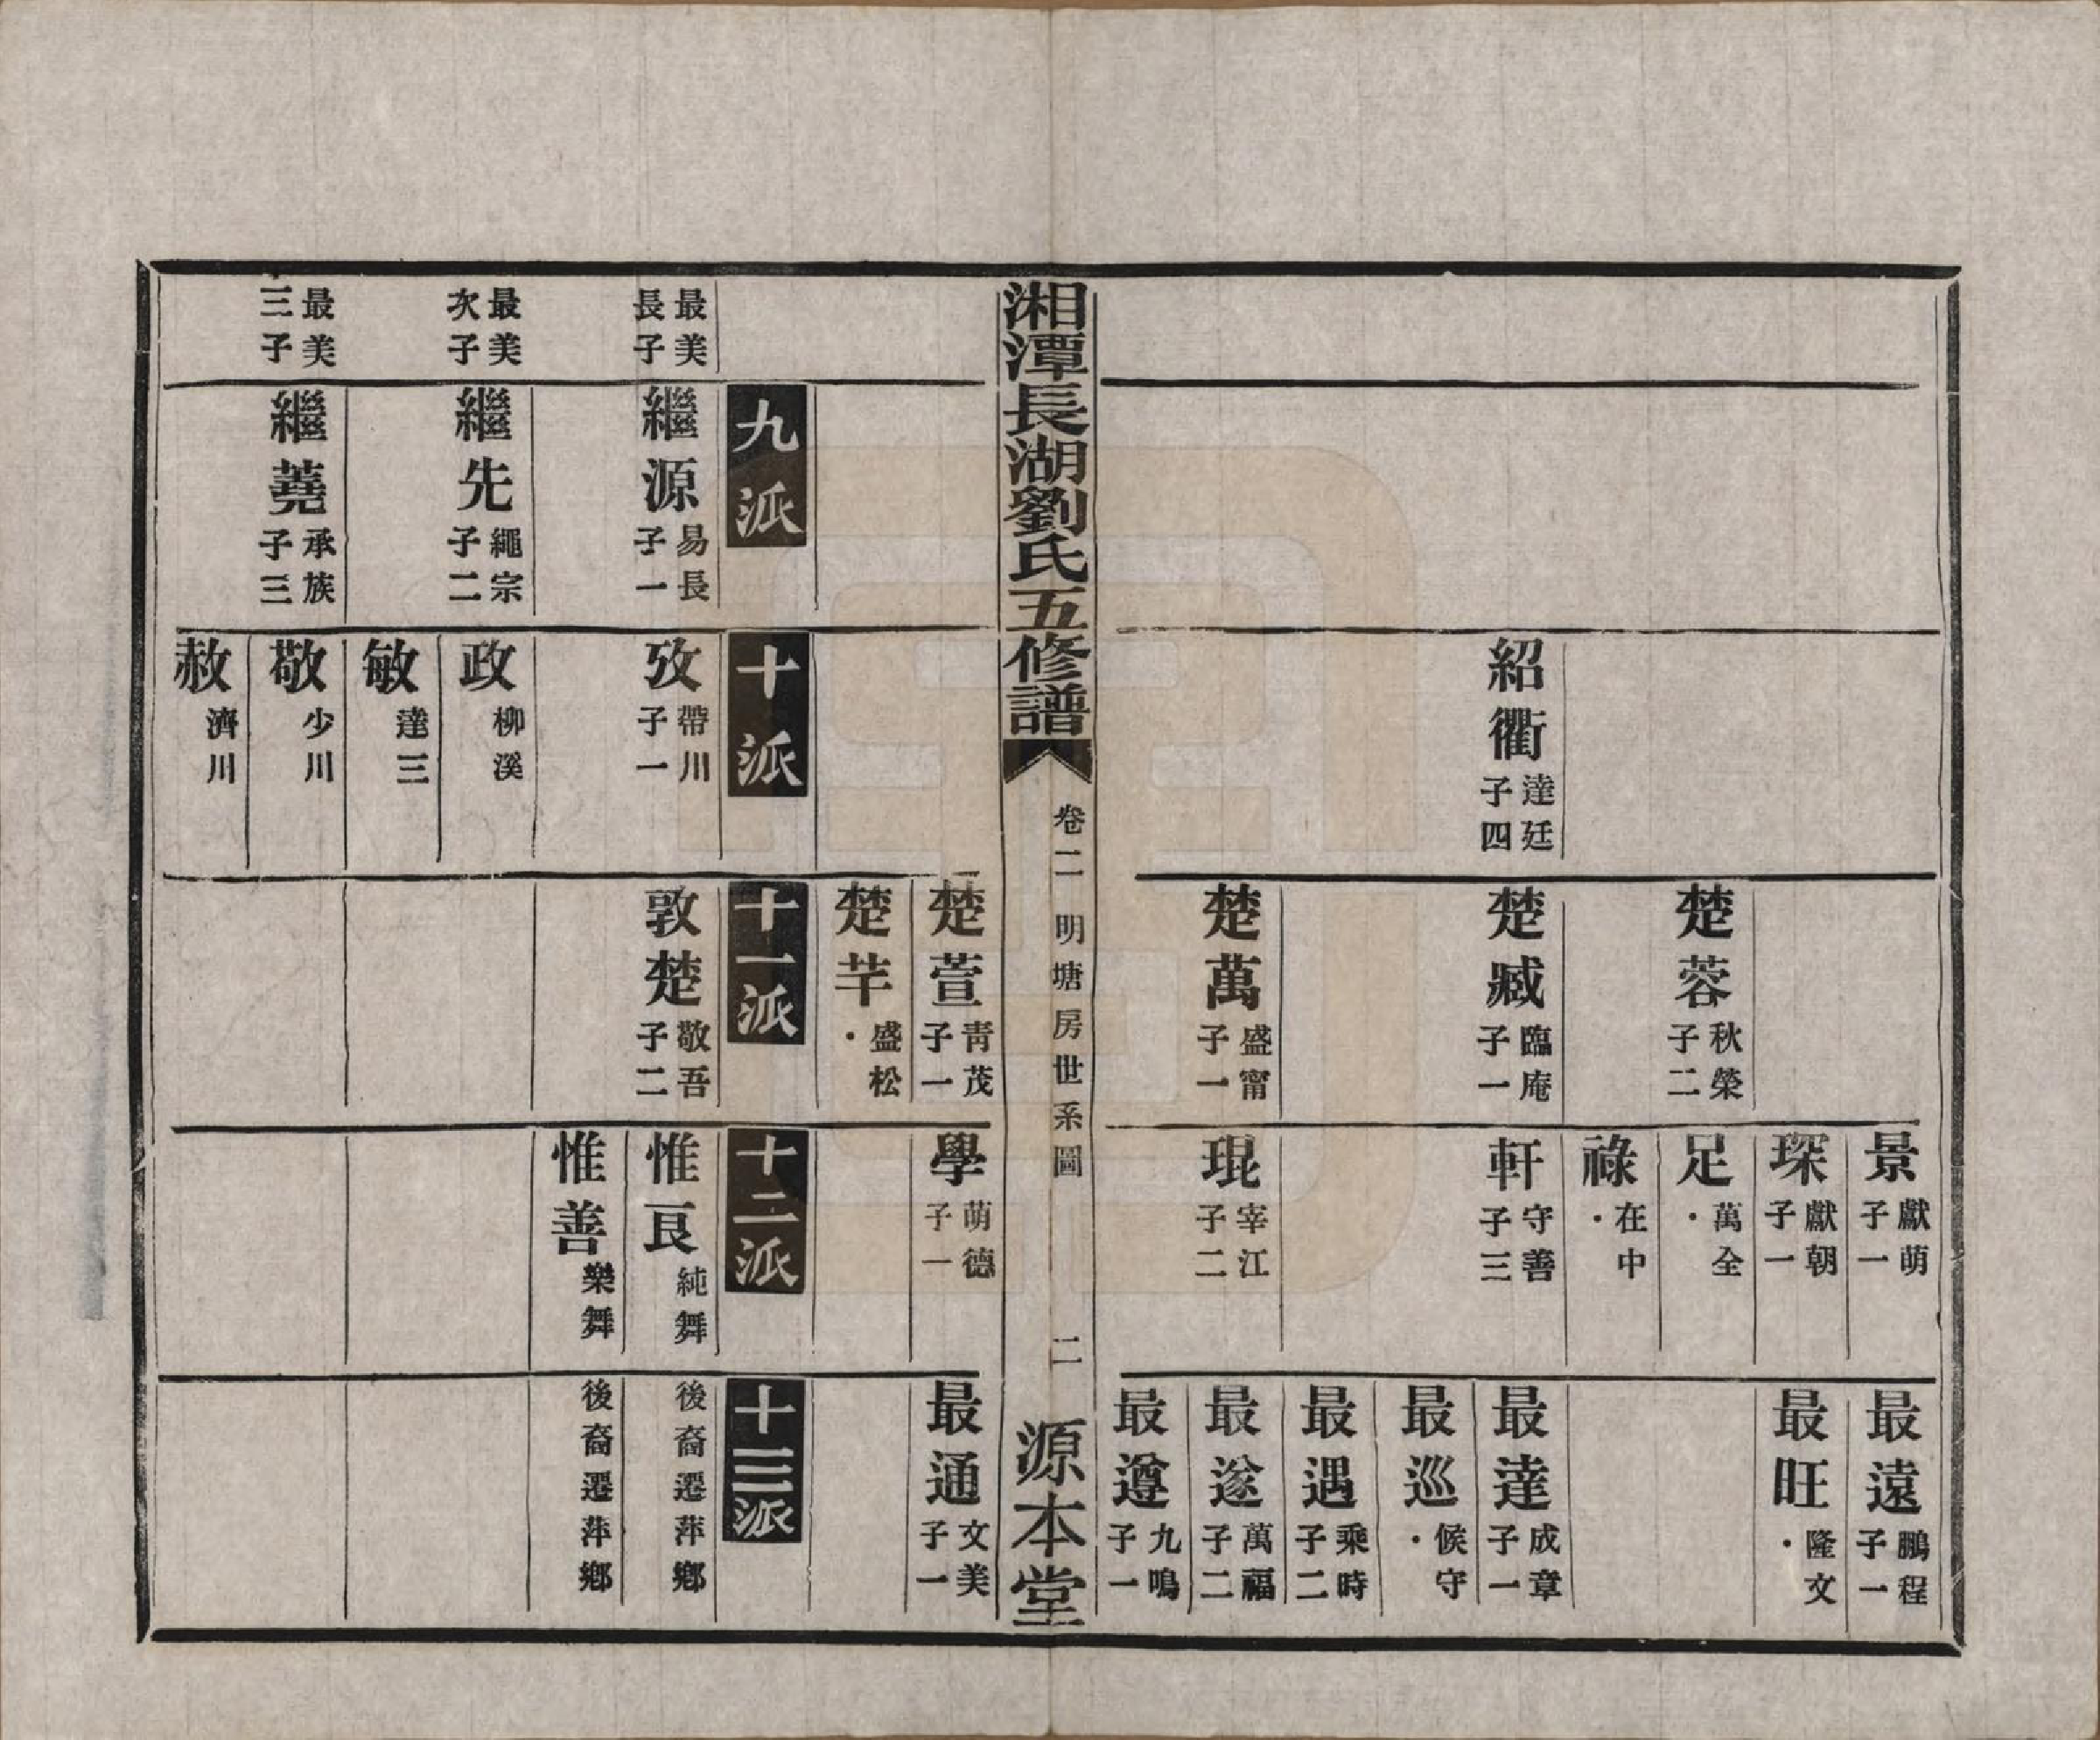 紹衢 達廷 子四
楚蓉 秋榮 子二
楚臧 臨庵 子一
楚萬 盛甯 子一
景 獻萌 子一
琛 獻朝 子一
足 萬全 ·
祿 在中 ·
軒 守善 子三
琨 宰江 子二
最遠 鵬程 子一
最旺 隆文 ·
最達 成章 子一
最巡 候守 ·
最遇 乘時 子二
最遂 萬福 子二
最遵 九鳴 子一
湘潭長湖劉氏五修譜
卷二 明塘房世系圖
二
源本堂
楚萱 靑茂 子一
楚芊 盛松 ·
學 萌德 子一
最通 文美 子一
九派
十派
十一派
十二派
十三派
最美長子
最美次子
最美三子
繼源 易長 子一
繼先 繩宗 子二
繼蕘 承族 子三
攷 帶川 子一
政 柳溪
敏 達三
敬 少川
赦 濟川
敦楚 敬吾 子二
惟良 純舞
惟善 樂舞
後裔遷萍鄉
後裔遷萍鄉